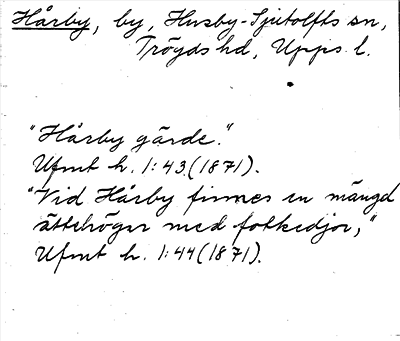 Hårby, by, Husby-Sjutolfts sn,
Trögds hd, Upps. l.
"Hårby gärde."
Ufmt h. 1:43.(1871).
"Vid Hårby finnes en mängd
ättehögar med fotkedjor,"
Ufmt h. 1:44(1871).